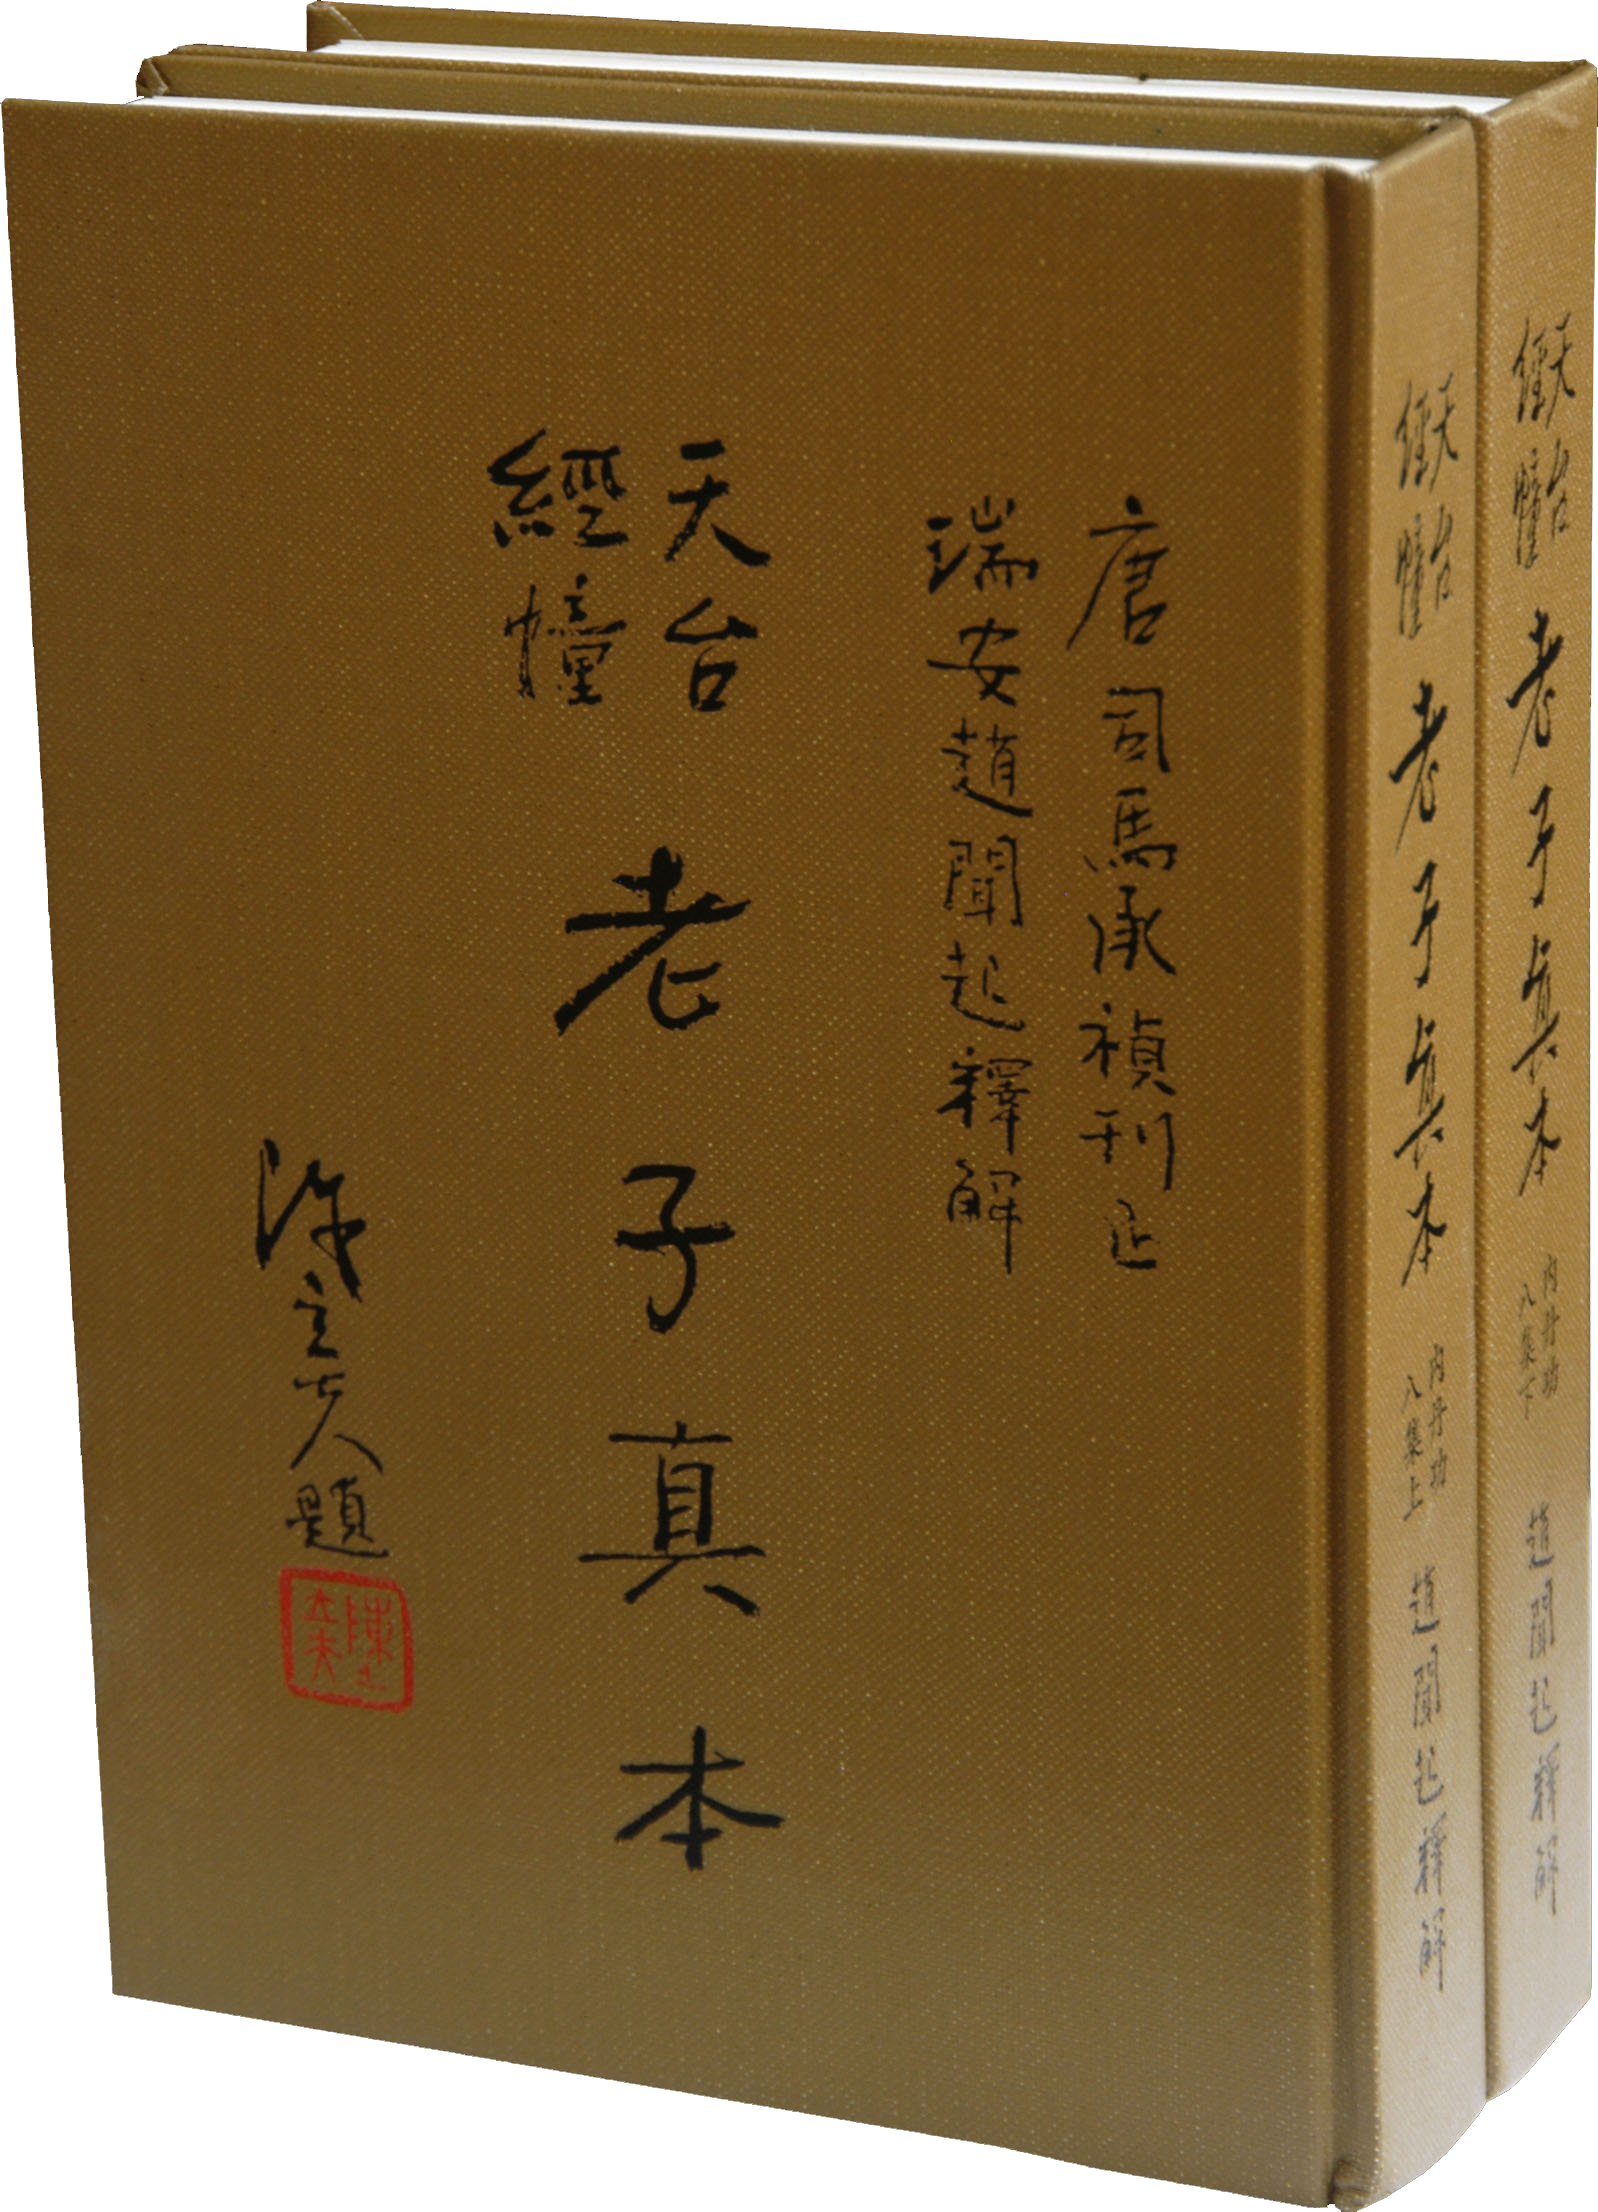 唐司馬承禎刊正
瑞安趙聞起釋解
天台
經幢
老子真本
陳立夫
立夫人題
天台
經幢
老子真本
內丹功
八集上
趙聞起釋解
天台
經幢
老子真本
內丹功
八集下
趙聞起釋解